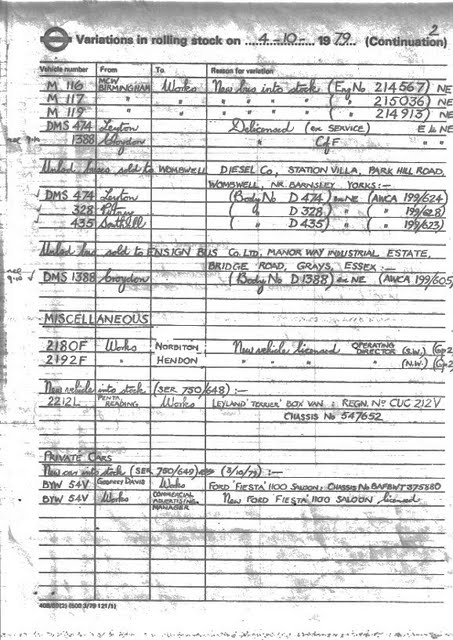 2
Variations in rolling stock on 4-10- 1979 (Continuation)
Vehicle number From To Reason for variation
M 116 MCW BIRMINGHAM Works New bus into stock (Eng No 214567) NE
M 117 " " " " " " ( " 215036) NE
M 119 " " " " " " ( " 214913) NE
DMS 474 Leyton Delicensed (ex SERVICE)
1388 Croydon " CfF
Unlicd. buses sold to WOMBWELL DIESEL Co, STATION VILLA, PARK HILL ROAD,
WOMBWELL, NR. BARNSLEY YORKS:-
DMS 474 Leyton (Body No D 474) ex NE (AWCA 199/624)
328 Putney ( " D 328) " ( " 199/628)
435 Southall ( " D 435) " ( " 199/623)
Unlicd bus sold to ENSIGN BUS Co. LTD, MANOR WAY INDUSTRIAL ESTATE,
BRIDGE ROAD, GRAYS, ESSEX:-
DMS 1388 Croydon (Body No D 1388) ex NE (AWCA 199/605)
MISCELLANEOUS
2180F Works NORBITON New vehicle licensed OPERATING DIRECTOR (S.W.) (Gp2
2192F " HENDON " " " " (N.W.) (Gp2
New vehicle into stock (SER 750/648):-
2212L PENTA, READING Works LEYLAND 'TERRIER' BOX VAN: REGN. No CUC 212V
CHASSIS No 547652
PRIVATE CARS
New car into stock (SER 750/649) (3/10/79):-
BYW 54V GODFREY DAVIS Works FORD 'FIESTA' 1100 SALOON: CHASSIS No BAFBWT375880
BYW 54V Works COMMERCIAL ADVERTISING MANAGER New FORD FIESTA 1100 SALOON licensed